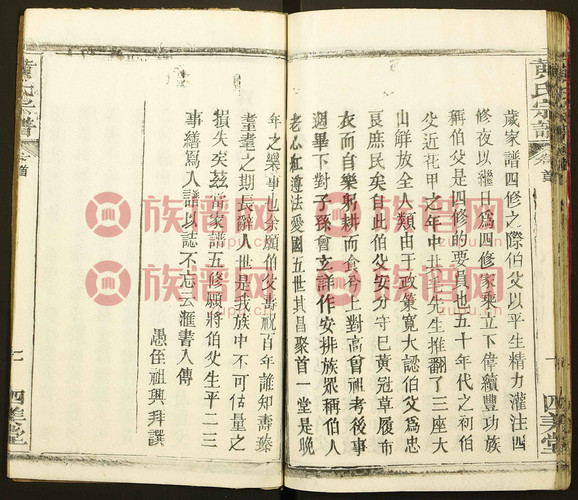 黄氏宗譜
卷首
四美堂
歲家譜四修之際伯父以平生精力灌注四
修夜以繼日爲四修家乘立下偉績豐功族
稱伯父是四修的要員也五十年代之初伯
父近花甲之年中共毛先生推翻了三座大
山解放全人類由于政策寬大認伯父爲忠
良庶民矣自此伯父安分守己黄冠草履布
衣而自樂躬耕而食兮上對高曾祖考後事
週畢下對子孫會玄詳作安排族眾稱伯人
老心紅遵法愛國五世其昌聚首一堂是晚
年之樂事也余願伯父壽祝百年誰知壽臻
耄耋之期長辭人世是我族中不可估量之
損失矣兹當家譜五修願將伯父生平二三
事繕寫人譜以誌不忘云滙書入傳
愚侄祖興拜譔
黄氏宗譜
卷首
七
四美堂
族谱网
族谱网
族谱网
族谱网